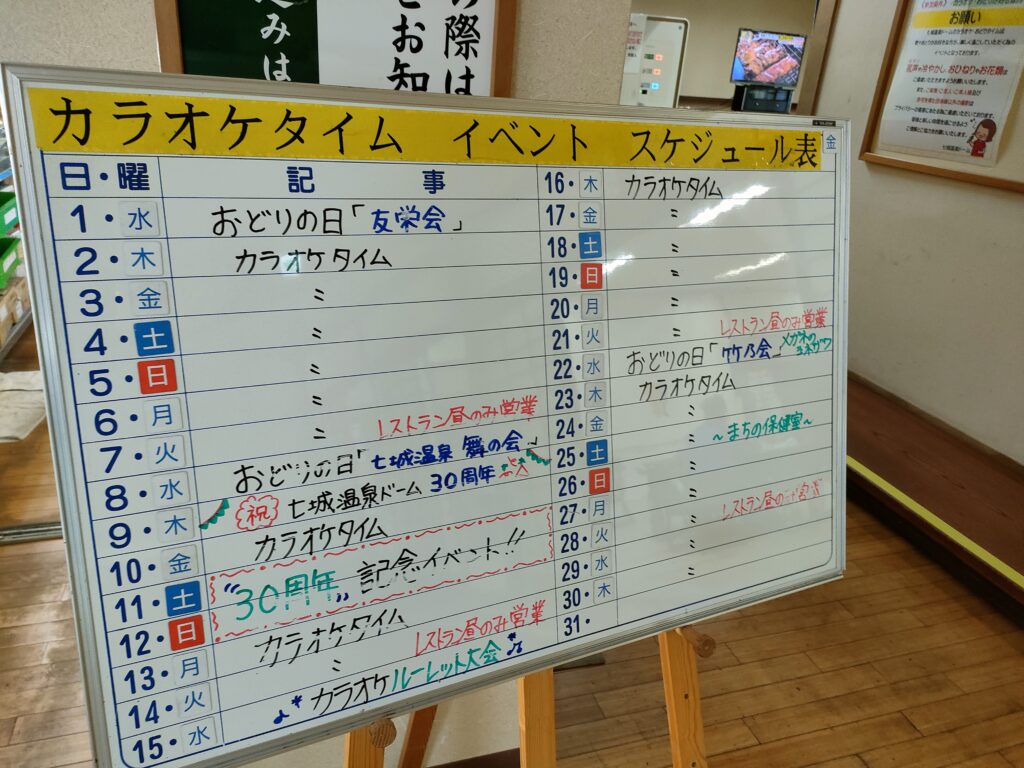 の際は
をお知
込みは
お願い
カラオケタイム イベント スケジュール表
金
日・曜 記 事
1・水 おどりの日「友栄会」
2・木 カラオケタイム
3・金 〃
4・土 〃
5・日 〃
6・月 〃
7・火 〃 レストラン昼のみ営業
8・水 おどりの日「七城温泉 舞の会」
9・木 祝 七城温泉ドーム 30周年
10・金 カラオケタイム
11・土 "30周年" 記念イベント!!
12・日
13・月 カラオケタイム
14・火 〃 レストラン昼のみ営業
15・水 カラオケルーレット大会
16・木 カラオケタイム
17・金 〃
18・土 〃
19・日 〃
20・月 〃
21・火 〃 レストラン昼のみ営業
22・水 おどりの日「竹乃会」
23・木 カラオケタイム
24・金 〃
25・土 〃 ～まちの保健室～
26・日 〃
27・月 〃
28・火 〃 レストラン昼のみ営業
29・水 〃
30・木 〃
31・